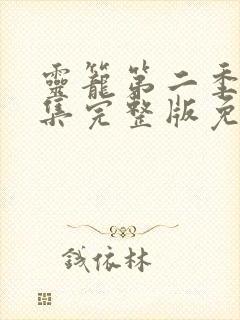 靈籠第二季
集完整版免
錢依林